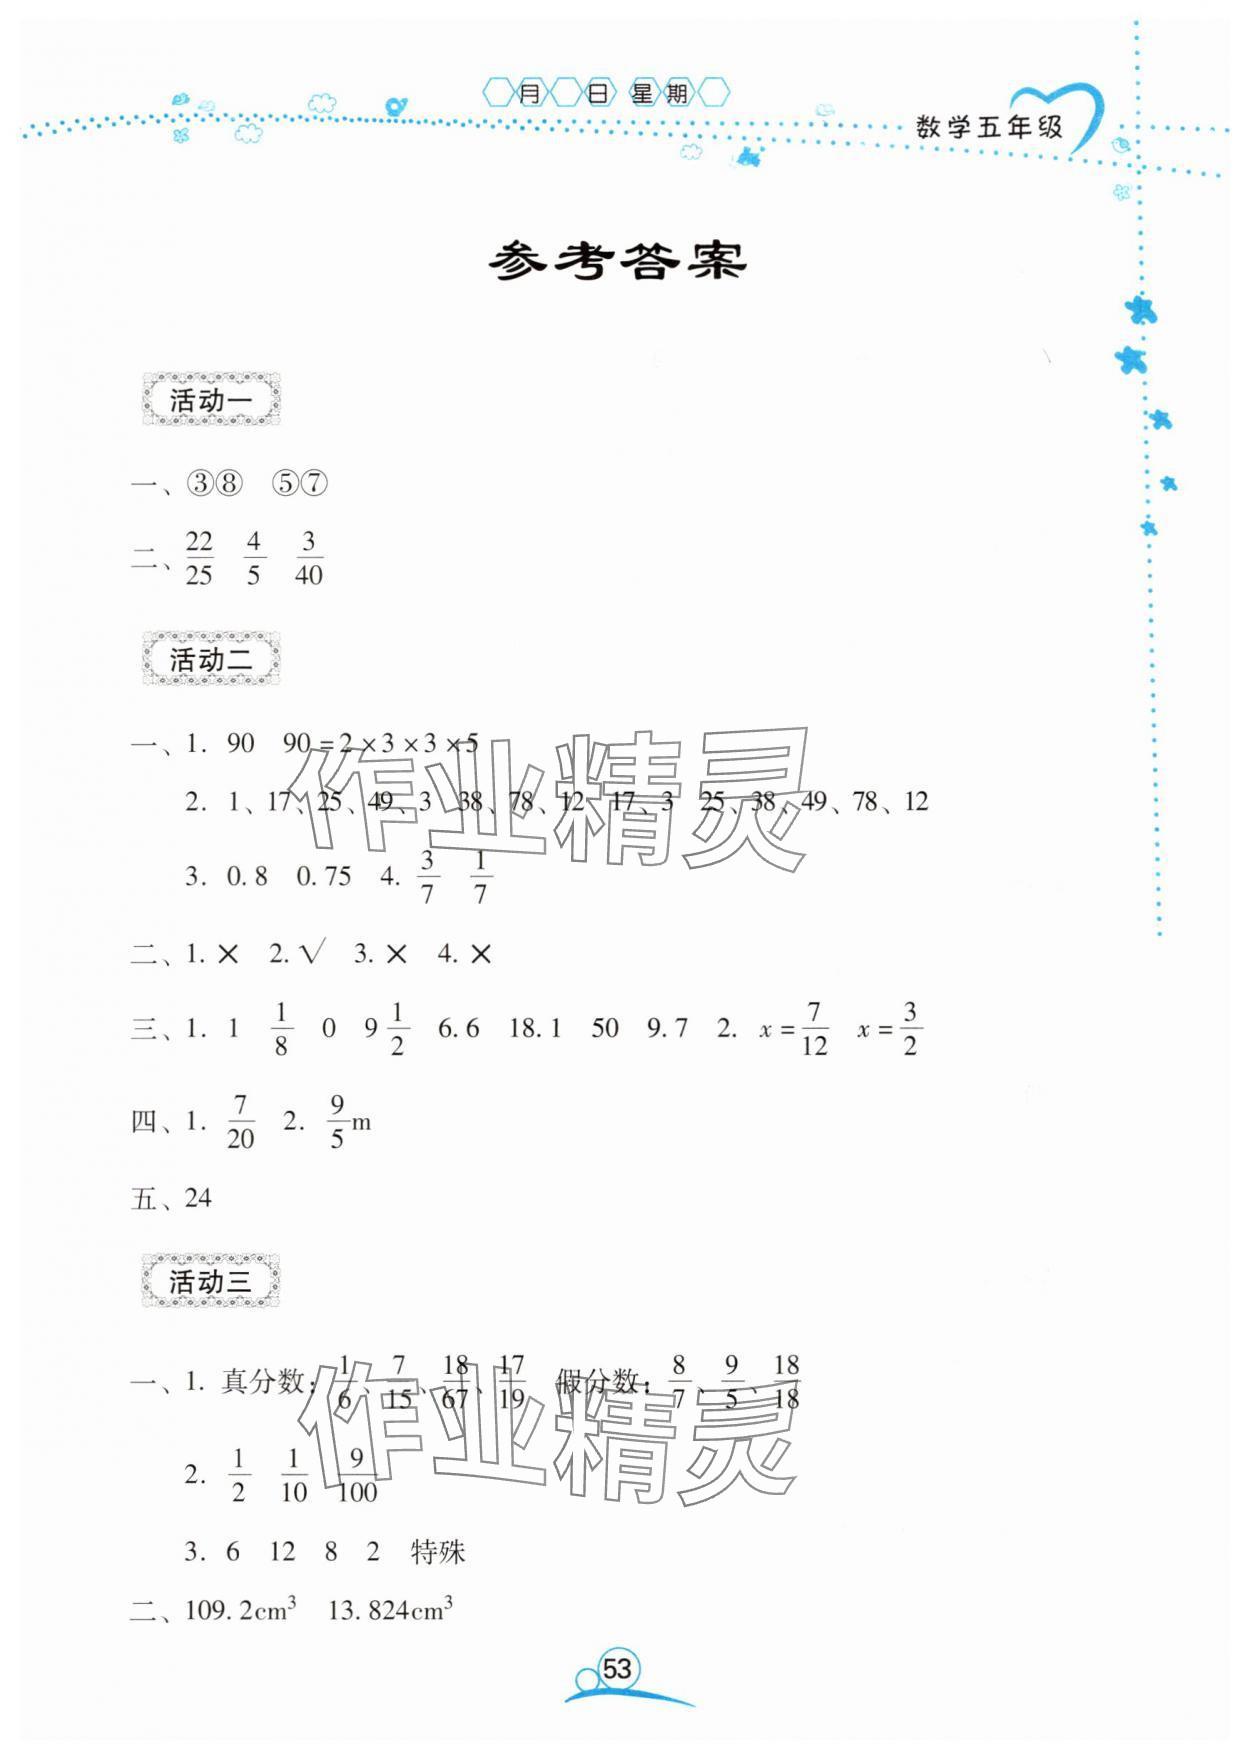 月 日 星期
数学五年级
参考答案
活动一
一、③⑧ ⑤⑦
二、22/25 4/5 3/40
活动二
一、1. 90 90=2×3×3×5
2. 1、17、25、49、3 38、78、12 17、3 25、38、49、78、12
3. 0.8 0.75 4. 3/7 1/7
二、1. × 2. √ 3. × 4. ×
三、1. 1 1/8 0 9 1/2 6.6 18.1 50 9.7 2. x=7/12 x=3/2
四、1. 7/20 2. 9/5 m
五、24
活动三
一、1. 真分数:1/6、7/15、18/67、17/19 假分数:8/7、9/5、18/18
2. 1/2 1/10 9/100
3. 6 12 8 2 特殊
二、109.2cm³ 13.824cm³
53
作业精灵
作业精灵